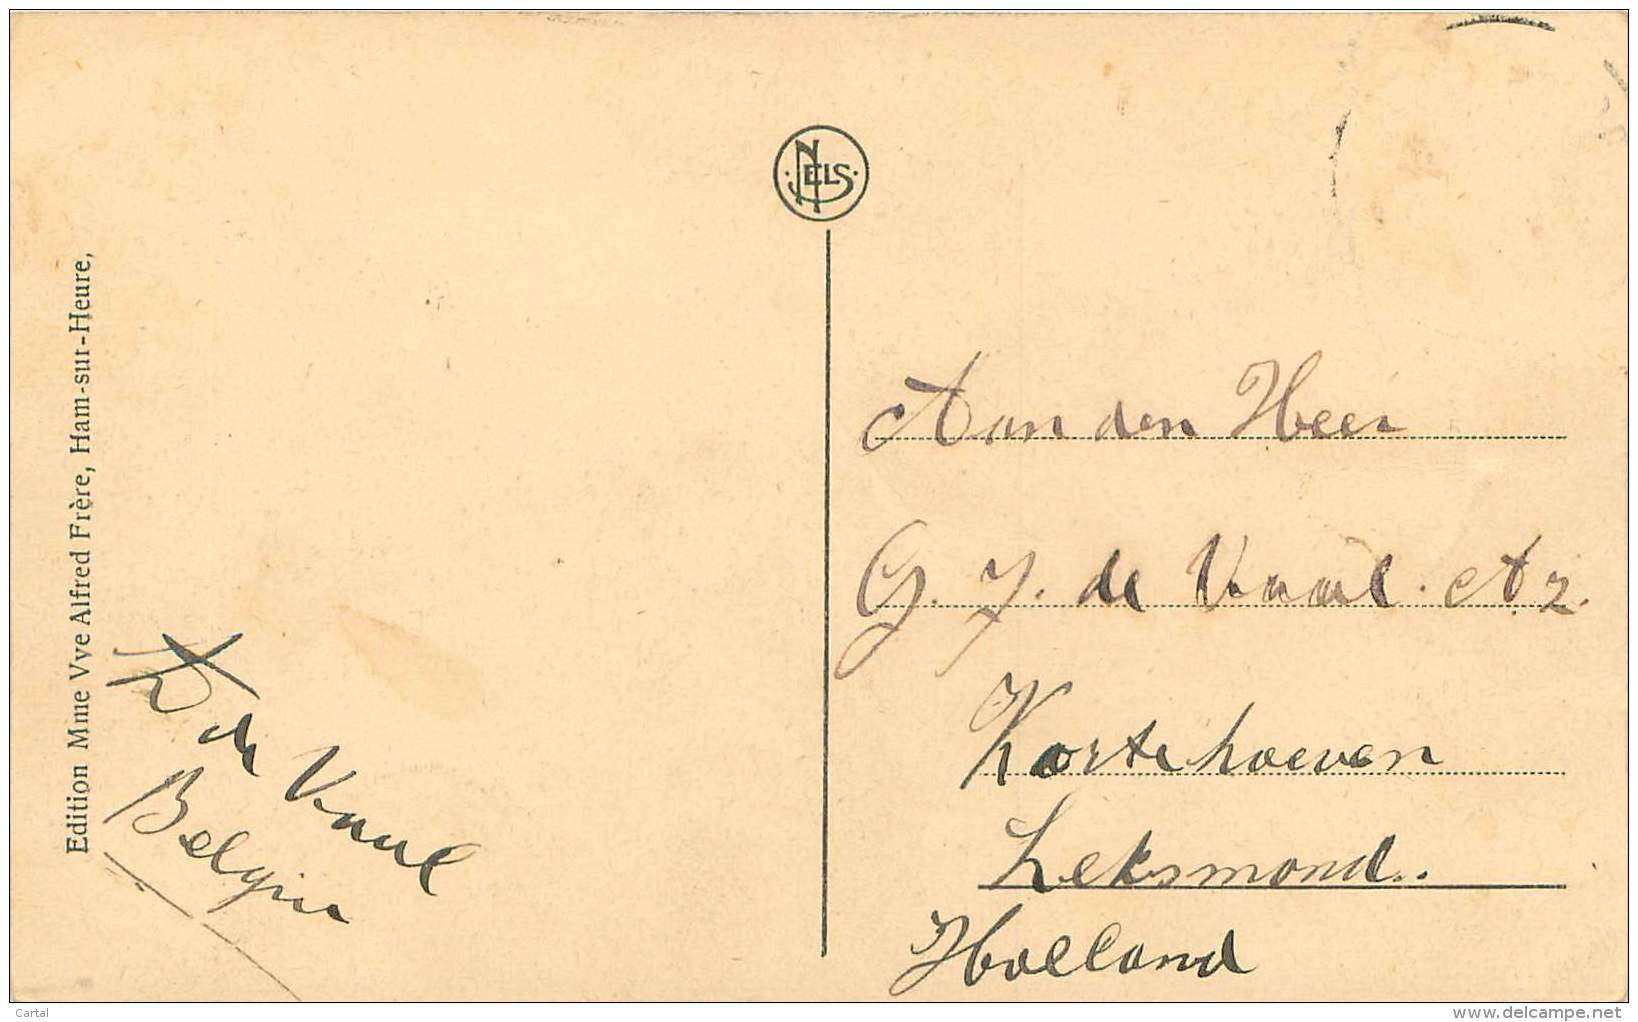 Edition Mme Vve Alfred Frère, Ham-sur-Heure,
NELS
Aan den Heer
G. J. de Vaal. Az.
Kortehoeven
Leksmond.
Holland
de Vaal
Belgie
Cartal
www.delcampe.net